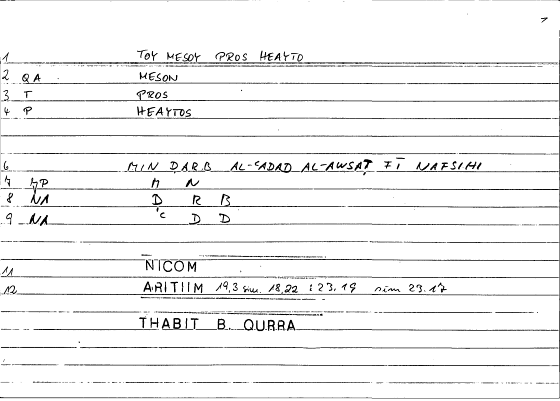 1 TOY MESOY PROS HEAYTO
2 QA MESON
3 T PROS
4 P HEAYTOS
6 MIN ḌARB AL-ʿADAD AL-AWSAṬ FĪ NAFSIHI
7 MP M N
8 NA Ḍ R B
9 NA ʿ D D
11 NICOM
12 ARITIIM 19,3 sim. 18,22 : 23.19 sim 23.17
THABIT B. QURRA